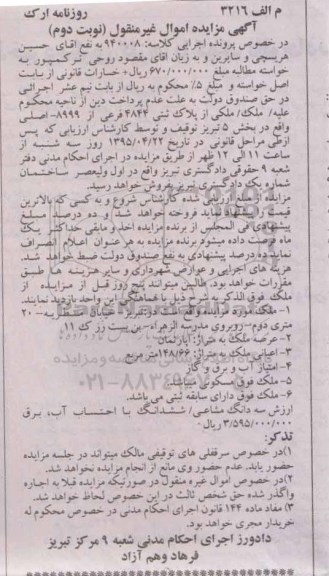 م الف ۳۲۱۶ روزنامه ارک
آگهی مزایده اموال غیرمنقول (نوبت دوم)
در خصوص پرونده اجرایی کلاسه: ۹۴۰۰۰۸ به نفع اقای حسین
هریسچی و سایرین و به زیان اقای مقصود روحی کرکمپور به
خواسته مطالبه مبلغ ۶۷۰/۰۰۰/۰۰۰ ریال+ خسارات قانونی از بابت
اصل خواسته و مبلغ ۵٪ محکوم به ریال از بابت نیم عشر اجرائی
در حق صندوق دولت به علت عدم پرداخت دین از ناحیه محکوم
علیه/ ملک/ملکی از پلاک ثبتی ۴۸۴۴ فرعی از ۸۹۹۹-اصلی
واقع در بخش ۵ تبریز توقیف و توسط کارشناس ارزیابی که پس
ازطی مراحل قانونی در تاریخ ۱۳۹۵/۰۴/۲۲ روز سه شنبه از
ساعت ۱۱ الی ۱۲ ظهر از طریق مزایده در اجرای احکام مدنی دفتر
شعبه ۹ حقوقی دادگستری تبریز واقع در اول ولیعصر ساختمان
شماره یک دادگستری تبریز بفروش خواهد رسید.
مزایده از مبلغ ارزیابی شده کارشناس شروع و به کسی که بالاترین
قیمت را پیشنهاد نماید فروخته خواهد شد و ده درصد مبلغ
پیشنهادی فی المجلس از برنده مزایده اخذ و مابقی حداکثر یک
ماه فرصت داده میشود برنده مزایده به هر عنوان اعلام انصراف
نماید ده درصد پیشنهادی به نفع صندوق دولت ضبط خواهد شد.
هزینه های اجرایی و عوارض شهرداری و سایر هزینه ها طبق
مقررات خواهد بود. طالبین میتوانند پنج روز قبل از مزایده از
ملک فوق الذکر به شرح ذیل با هماهنگی این واحد بازدید نمایند.
۱- ملک مورد مزایده واقع است در: تبریز ۲۰
متری دوم-روبروی مدرسه الزهراء-بن بست رز ک ۱۱
۲-عرصه ملک به متراژ: آپارتمان
۳-اعیانی ملک به متراژ: ۱۴۸/۶۶ متر مربع
۴-امتیاز آب و برق و گاز
۵-ملک فوق مسکونی میباشد.
۶-ملک فوق دارای سابقه ثبتی می باشد.
ارزش سه دانگ مشاعی/ ششدانگ با احتساب آب، برق
۳/۵۹۵/۰۰۰/۰۰۰ ریال
تذکر:
۱)در خصوص سرقفلی های توقیفی مالک میتواند در جلسه مزایده
حضور یابد. عدم حضور وی مانع از انجام مزایده نخواهد شد.
۲)در خصوص اموال غیره منقول در صورتیکه مزایده قبلا به اجاره
واگذار شده حق شخص ثالث در این خصوص لحاظ خواهد شد.
۳) مفاد ماده ۱۴۴ قانون اجرای احکام مدنی در خصوص محکوم له
خریدار مجری خواهد بود.
دادورز اجرای احکام مدنی شعبه ۹ مرکز تبریز
فرهاد وهم آزاد